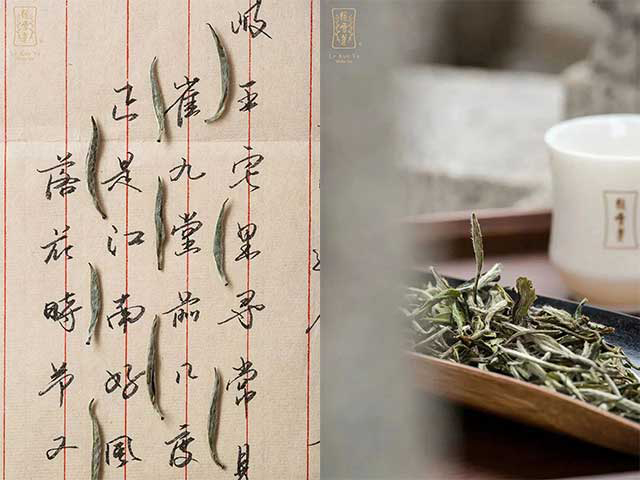 岐王宅里寻常見
崔九堂前几度
正是江南好風
落花時节又